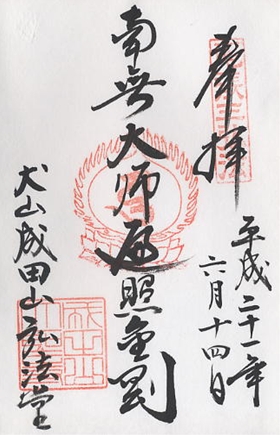 奉拝
平成二十一年
六月十四日
南無大師遍照金剛
犬山成田山弘法堂